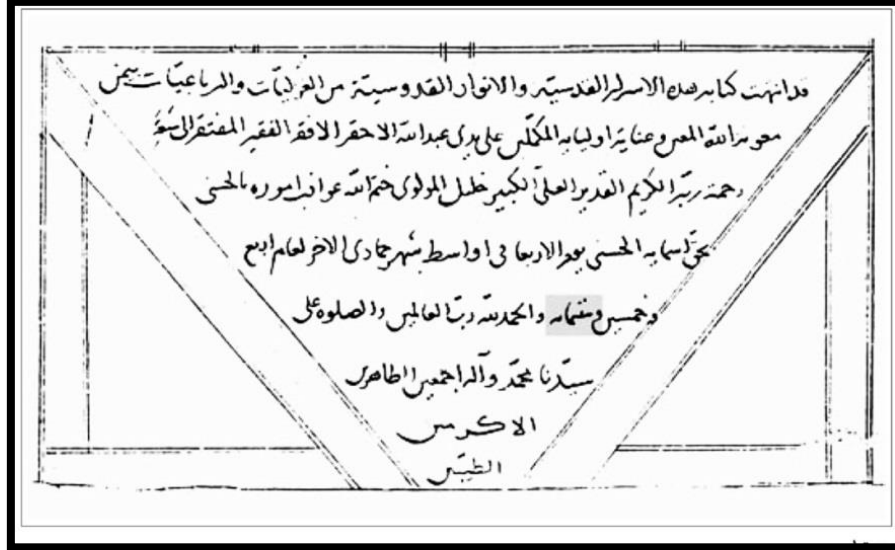 قد انتهت كتابه هذه الاسرار القدسيّة والانوار القدوسيّة من الغزليّات والرباعيّات بيمن
معونة الله المعين وعناية اوليايه المكمّلين على يدى عبد الله الاحقر الافقر الفقير المفتقر الى سعة
رحمة ربّه الكريم القدير العلىّ الكبير خليل المولوى ختم الله عواقب اموره بالحسنى
بحقّ اسمايه الحسنى يوم الاربعا فى اواسط شهر جمادى الاخر لعام اربع
وخمسين والحمد لله ربّ العالمين والصلوه على
سيّدنا محمّد وآله اجمعين الطاهرين
الاكرمين
الطيّبين